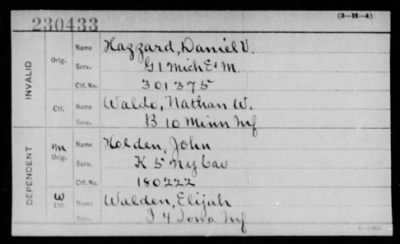 230433
(3-H-4)
INVALID
Orig.
Name Hazzard, Daniel V.
Serv. G 1 Mich E & M.
Ctf. No. 301375
Ctf.
Name Waldo, Nathan W.
Serv. B 10 Minn Inf
DEPENDENT
M
Orig.
Name Holden, John
Serv. K 5 NY Cav
Ctf. No. 180222
W
Ctf.
Name Walden, Elijah
Serv. I 4 Iowa Inf